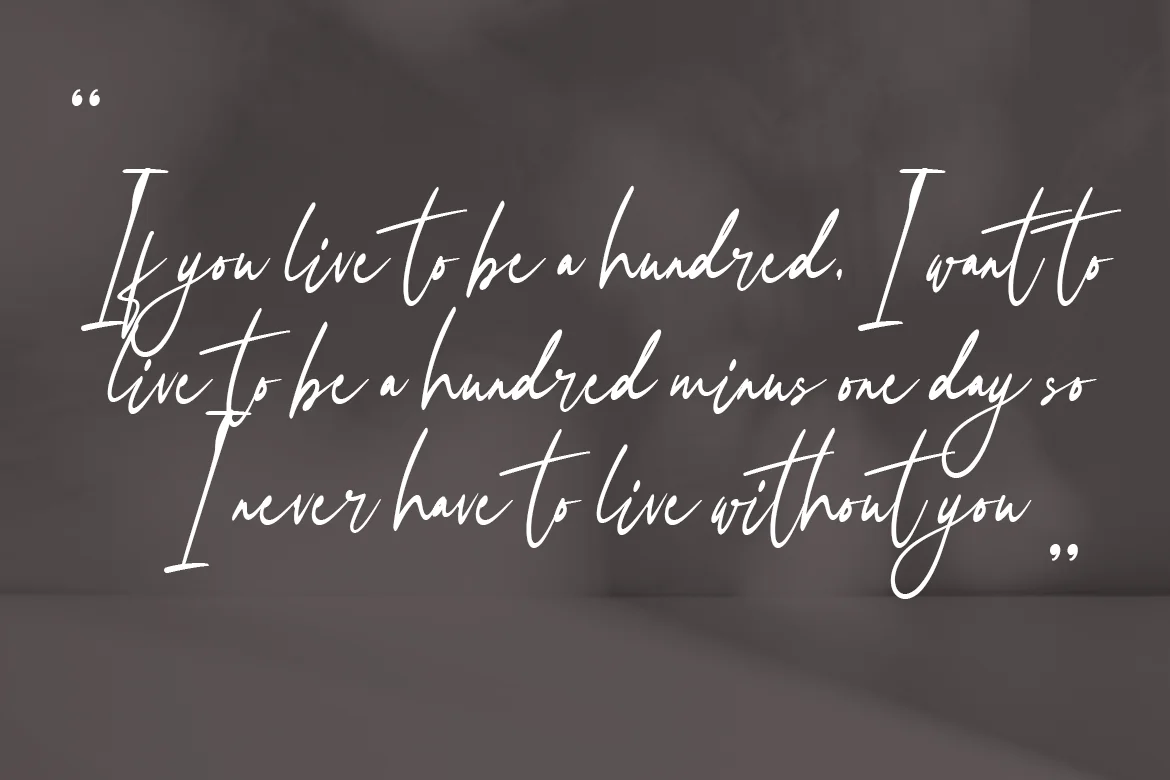 “
If you live to be a hundred, I want to
live to be a hundred minus one day so
I never have to live without you
”